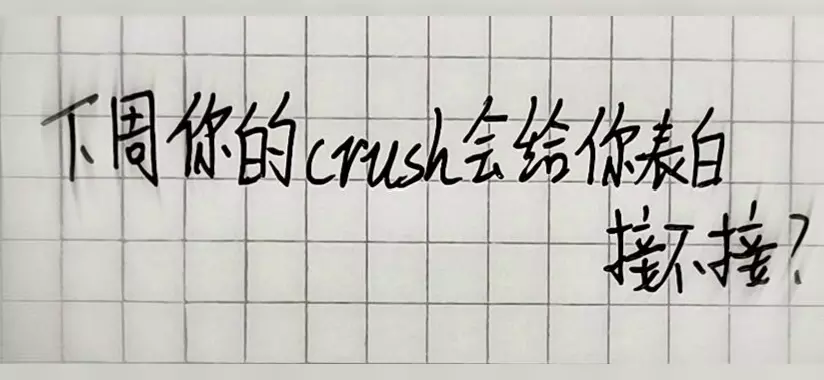 下周你的crush会给你表白
接不接?